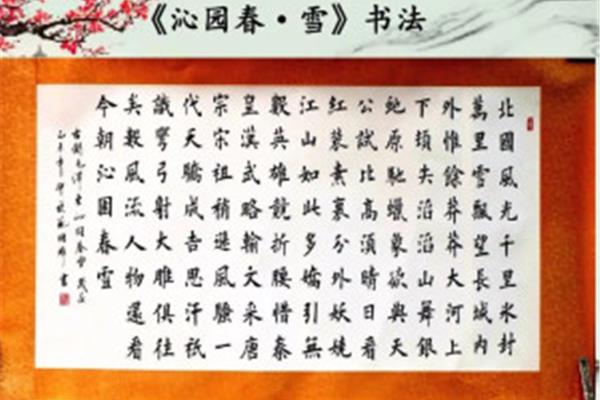 《沁园春·雪》书法
北國風光千里氷封
萬里雪飄望長城内
外惟餘莽莽大河上
下頓失滔滔山舞銀
蛇原馳蠟象欲與天
公試比高須晴日看
紅裝素裹分外妖嬈
江山如此多嬌引無
數英雄競折腰惜秦
皇漢武略輸文采唐
宗宋祖稍遜風騷一
代天驕成吉思汗祇
識彎弓射大雕俱往
矣數風流人物還看
今朝沁園春雪